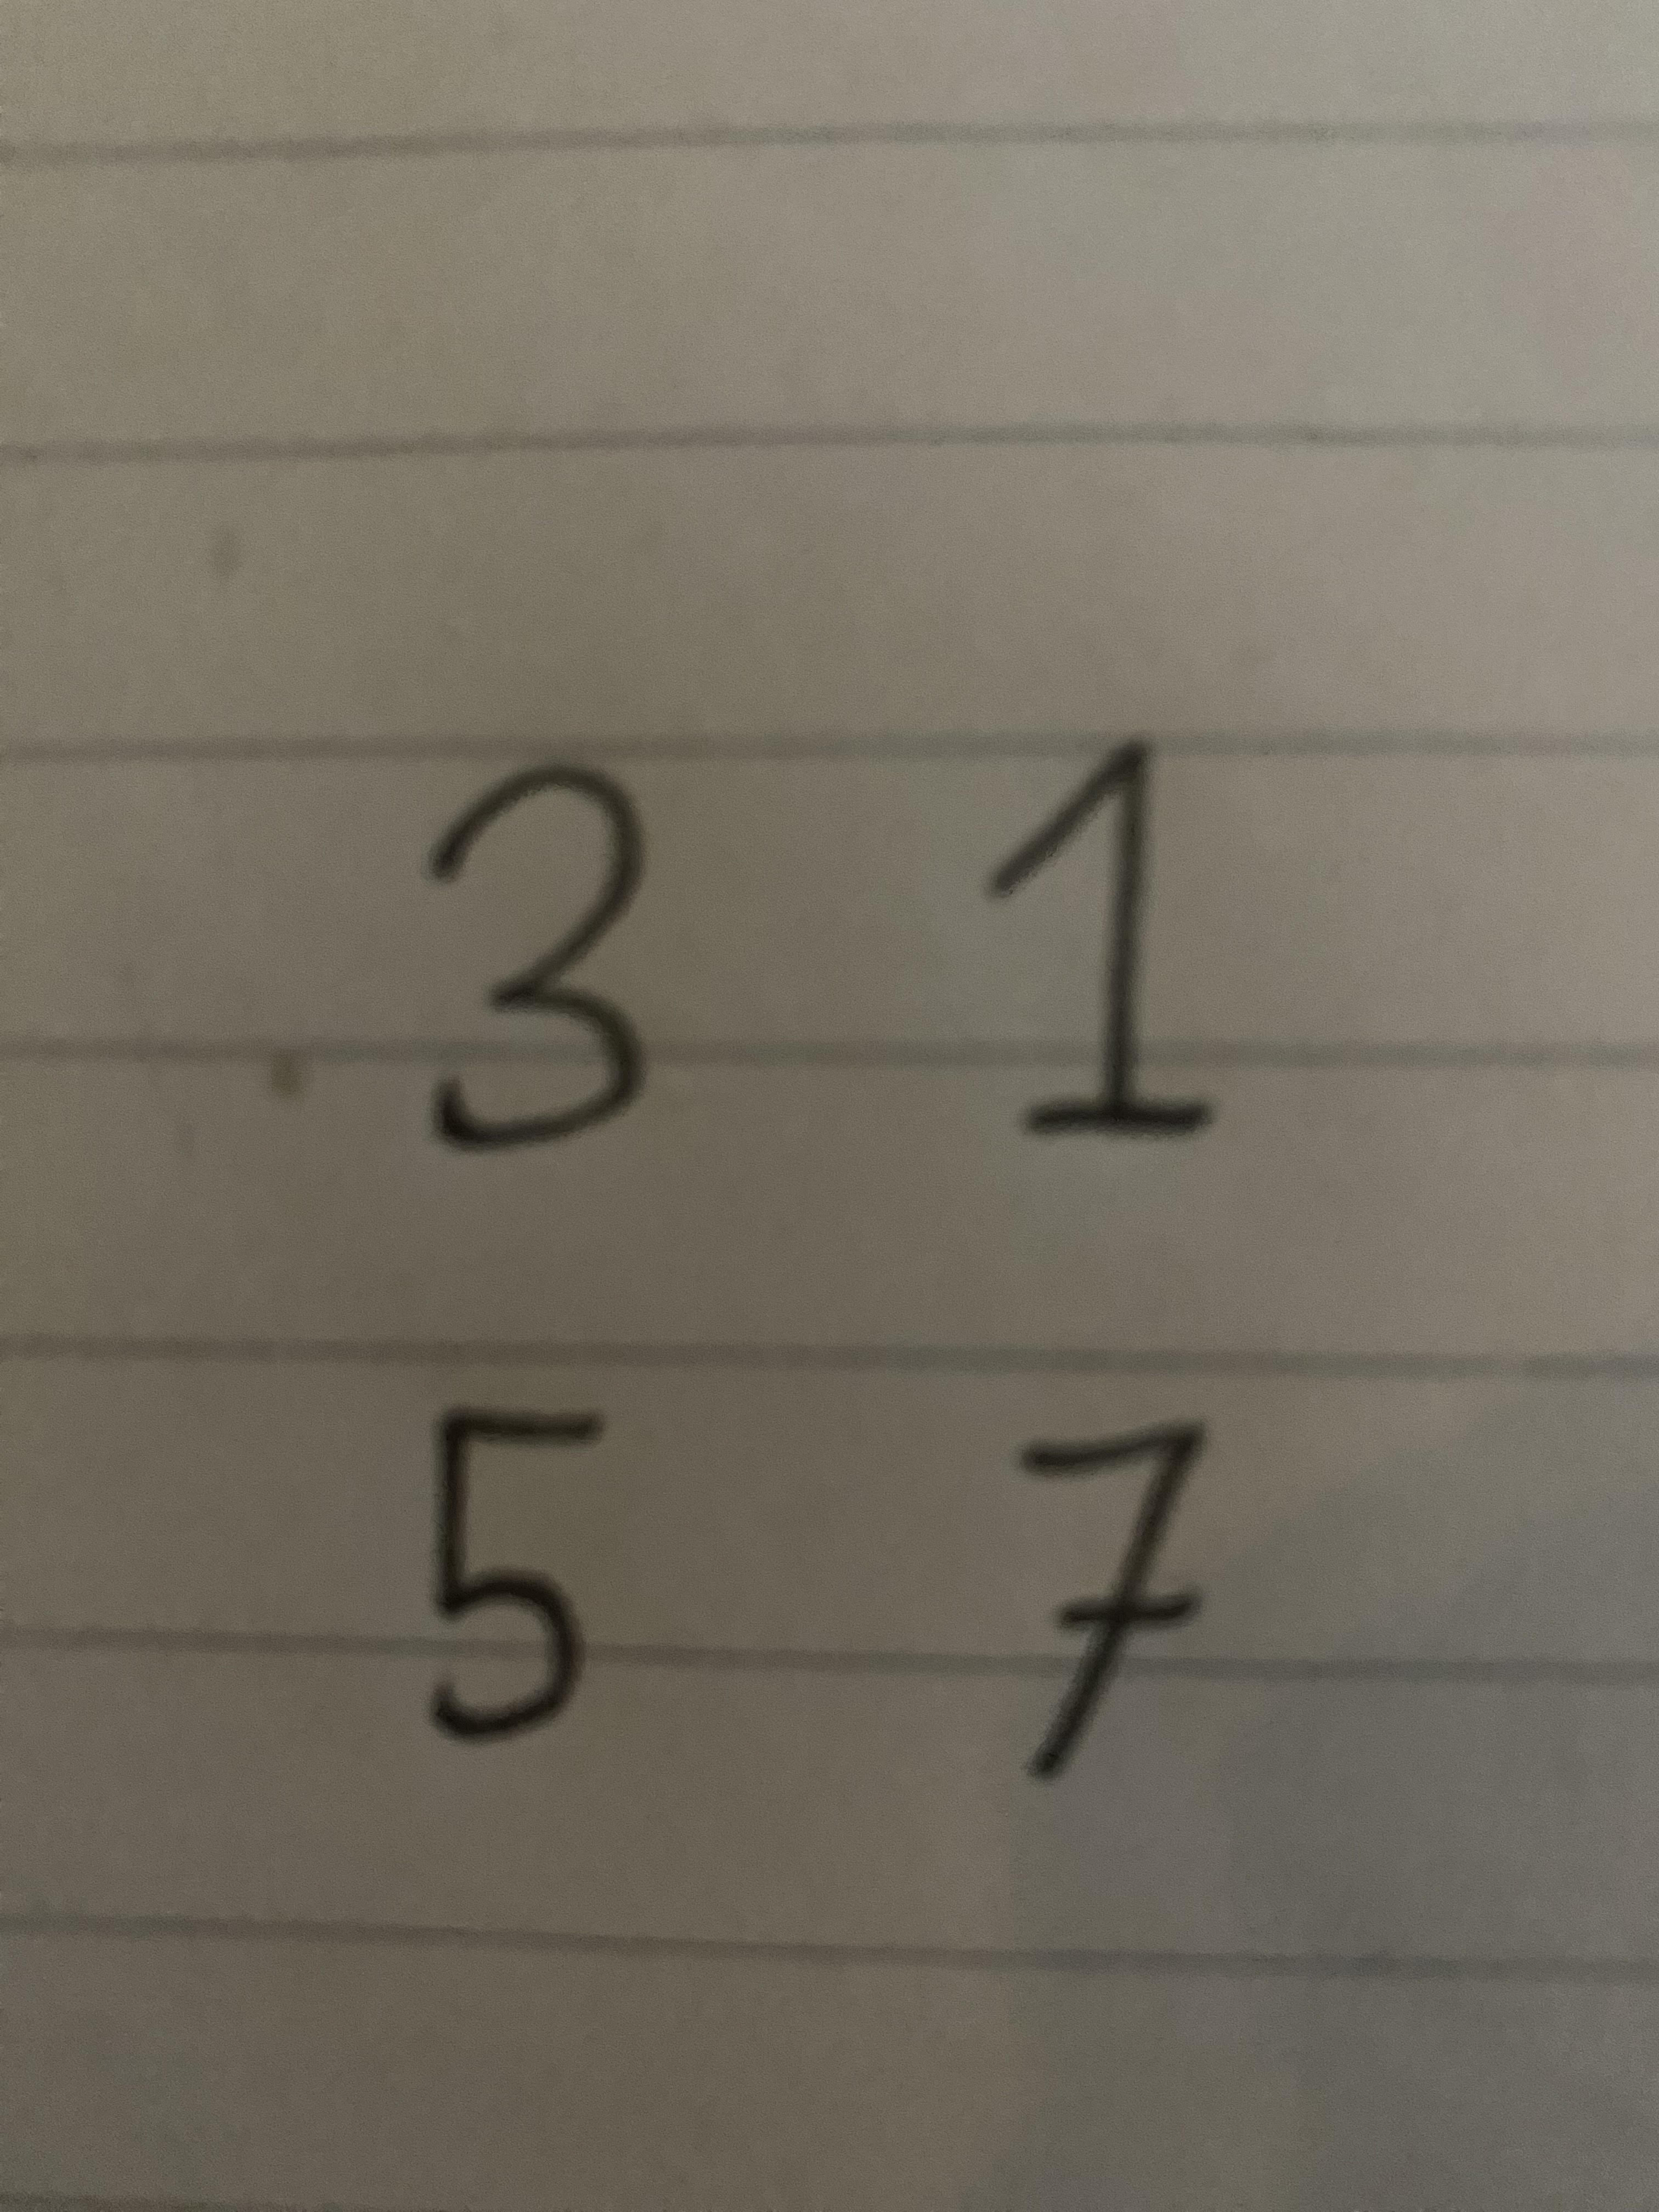 3 1
5 7